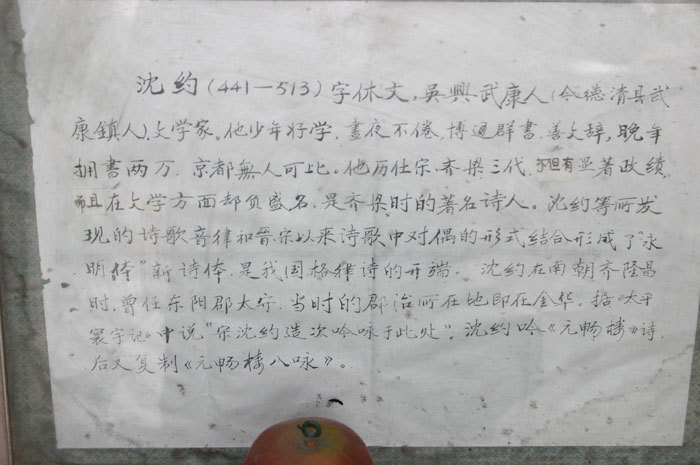 沈约(441—513)字休文,吳興武康人(今德清县武
康鎮人),文学家。他少年好学,晝夜不倦,博通群書,善文辞,晚年
拥書两万,京都無人可比。他历仕宋、齐、梁三代,不但有显著政绩,
而且在文学方面却负盛名,是齐梁时的著名诗人。沈约等所发
现的诗歌音律和晋宋以来诗歌中对偶的形式结合形成了“永
明体”新诗体,是我国格律诗的开端。沈约在南朝齐隆昌
时,曾任东阳郡太守,当时的郡治所在地即在金华。据《太平
寰宇记》中说“宋沈约造次吟咏于此处”。沈约吟《元畅楼》诗,
后又复制《元畅楼八咏》。